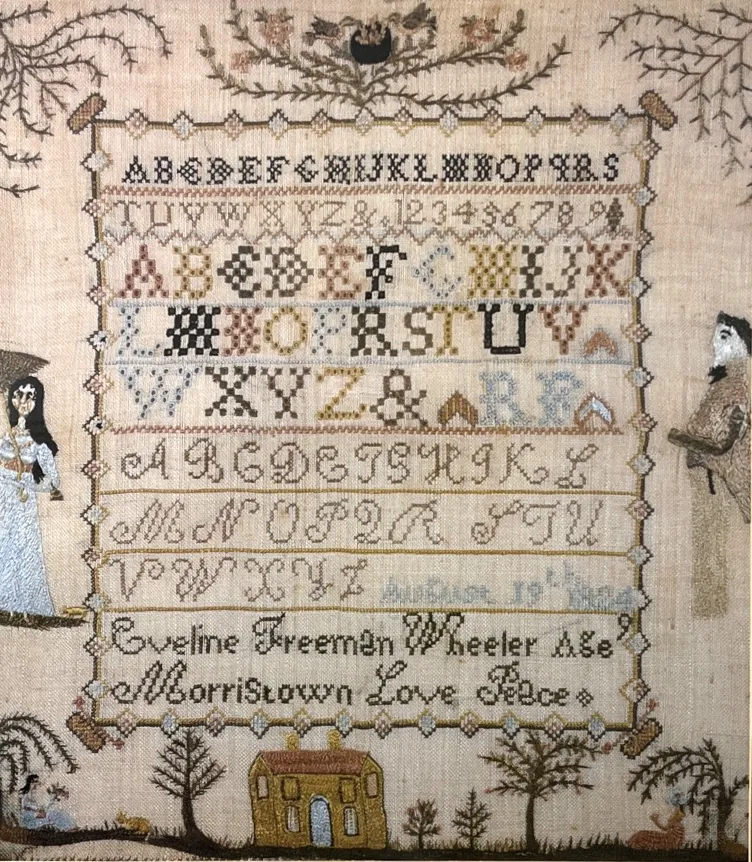 ABCDEFGHIJKLMNOPQRS
TUVWXYZ&.123456789
ABCDEFGHIJK
LMNOPRSTUV
WXYZ&
ABCDEFGHIKL
MNOPQRSTU
VWXYZ August 19th
Eveline Freeman Wheeler Age 9
Morristown Love Peace